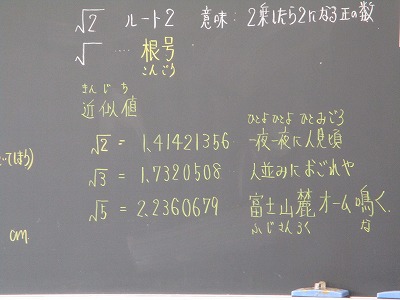 √2 ルート2 意味:2乗したら2になる正の数
√ … 根号
こんごう
きんじち
近似値
ひとよひとよ ひとみごろ
√2 = 1.41421356 一夜一夜に人見頃
√3 = 1.7320508 人並みにおごれや
√5 = 2.2360679 富士山麓オーム鳴く
ふじさんろく な
cm